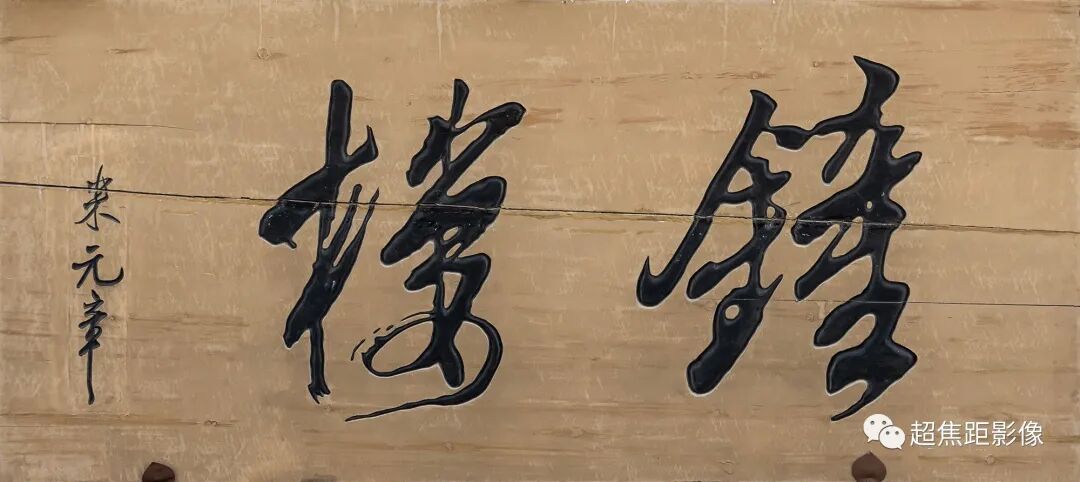 鐘樓
米元章
超焦距影像